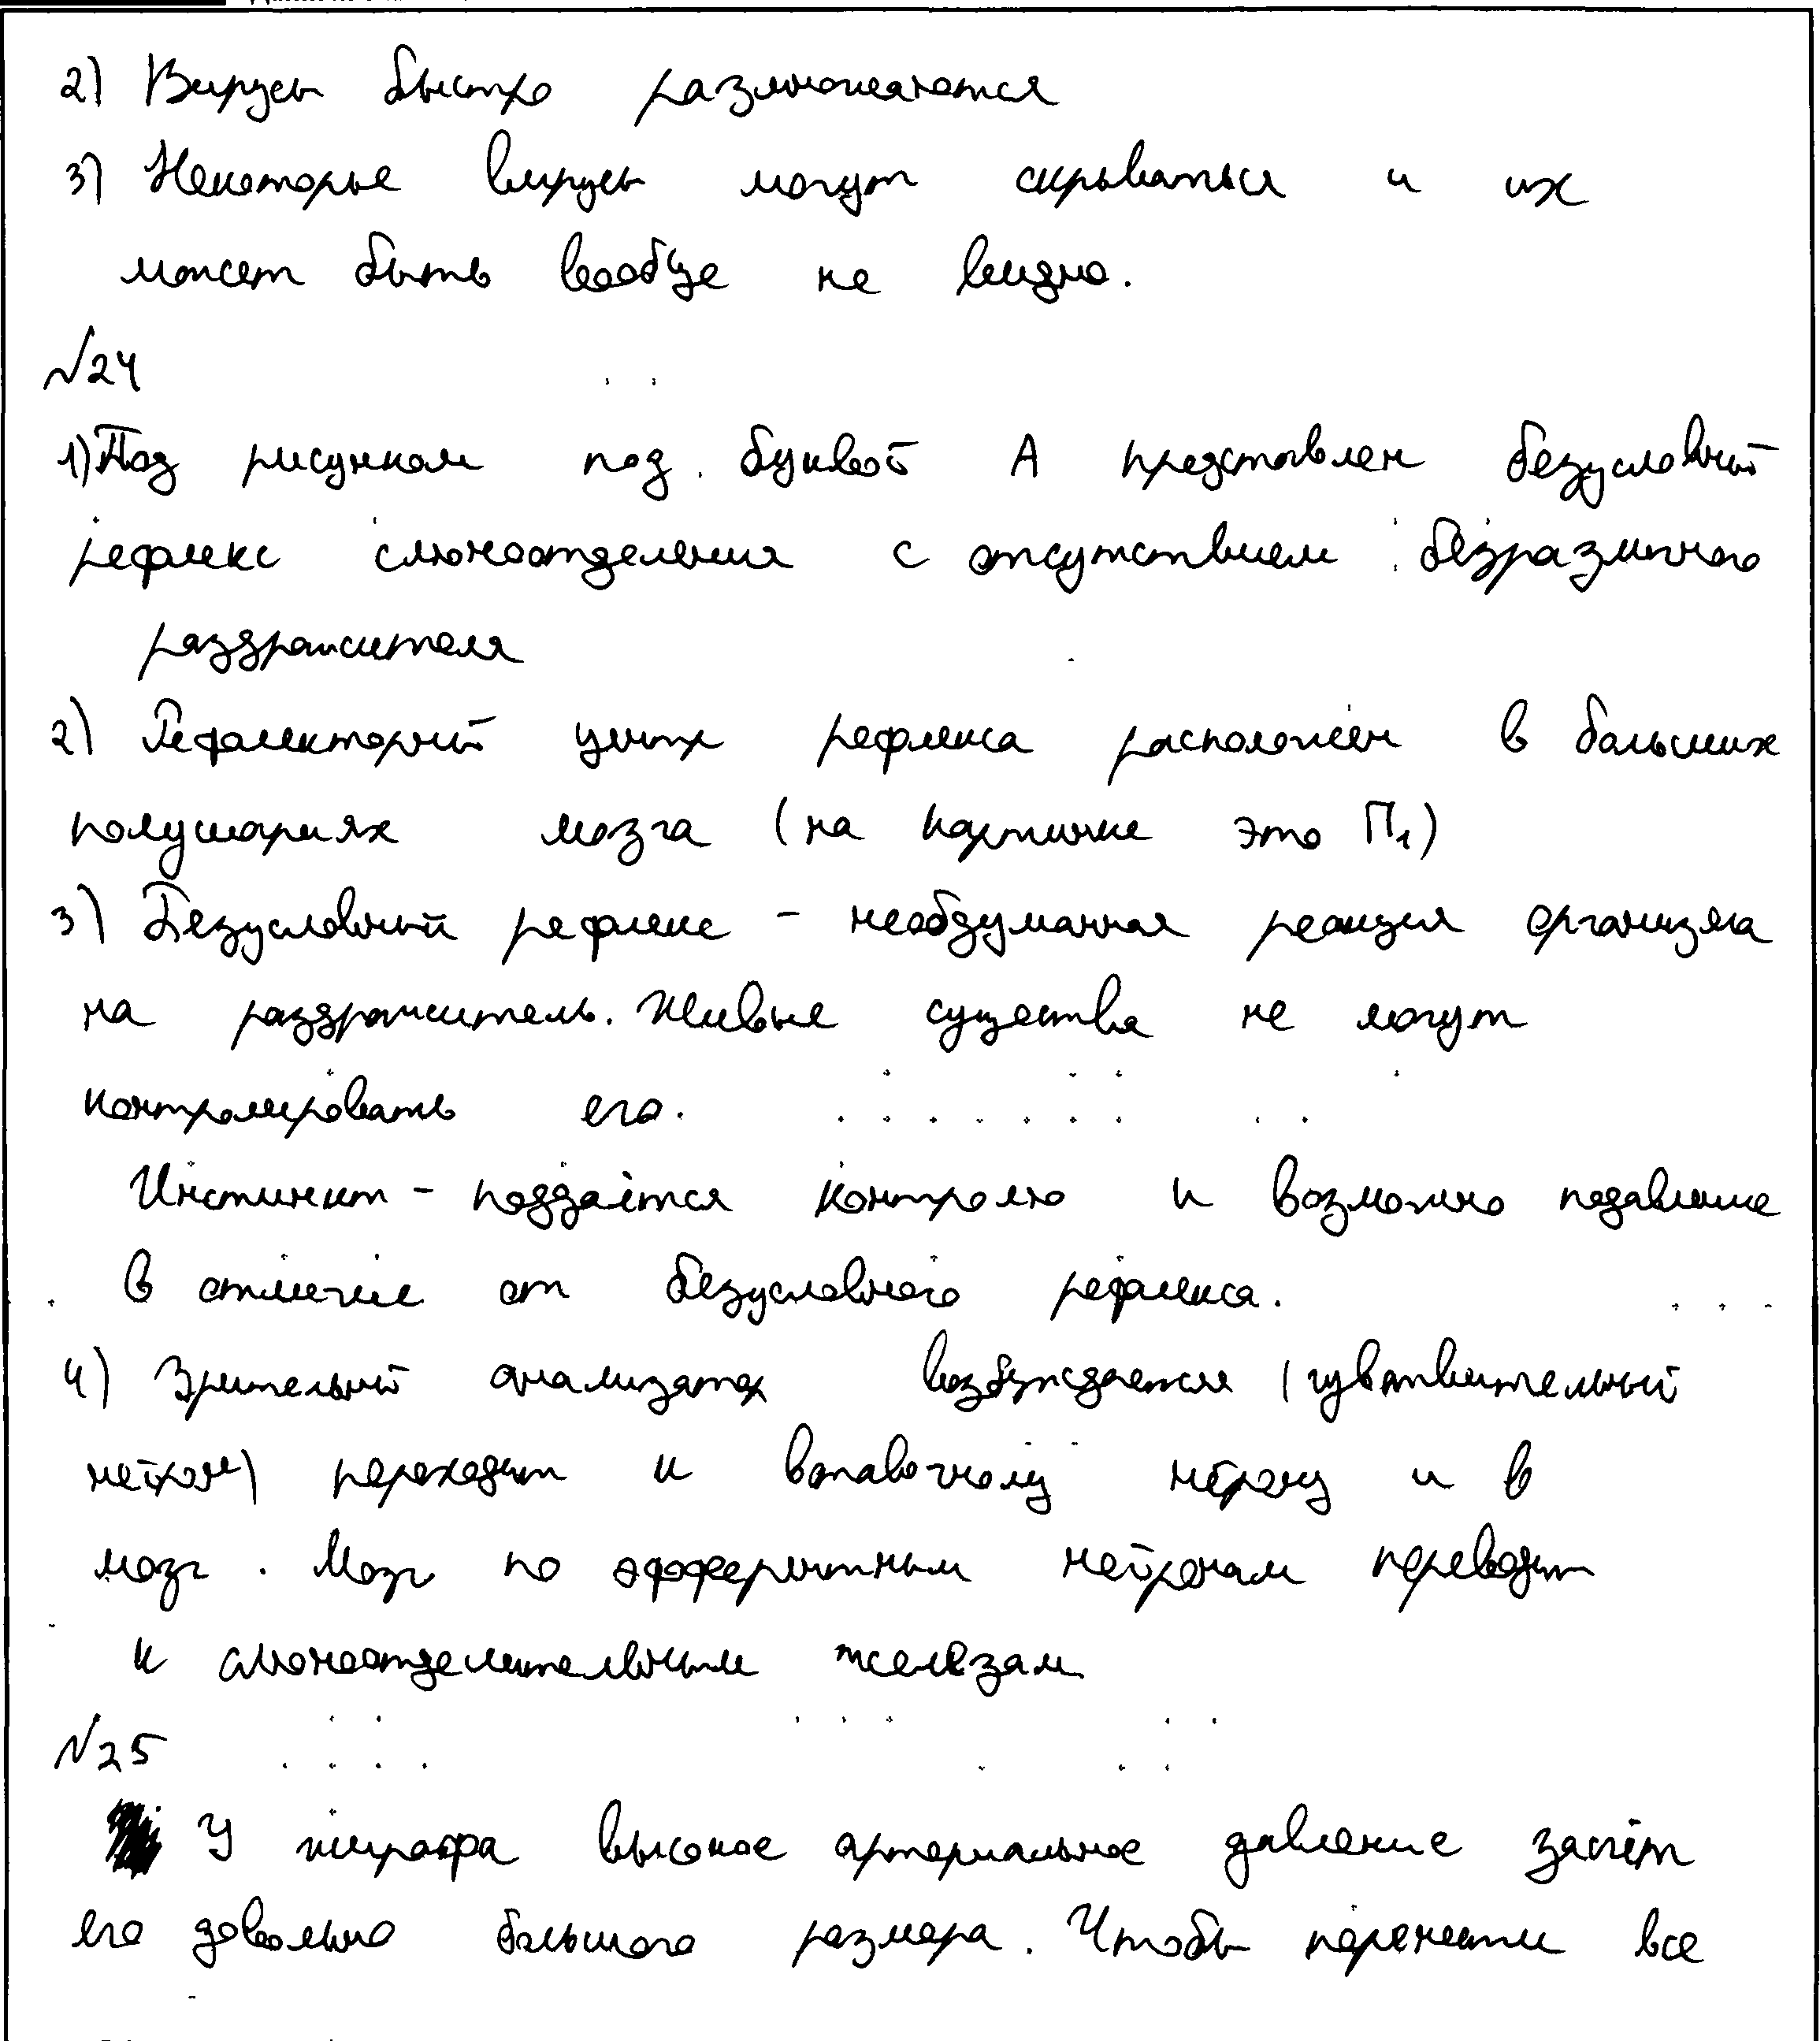 2) Вирусы быстро размножаются
3) Некоторые вирусы могут скрываться и их
может быть вообще не видно.
№24
1) Под рисунком под буквой А представлен безусловный
рефлекс слюноотделения с отсутствием безразличного
раздражителя
2) Рефлекторный центр рефлекса расположен в больших
полушариях мозга (на картинке это П1)
3) Безусловный рефлекс - необдуманная реакция организма
на раздражитель. Живые существа не могут
контролировать его.
Инстинкт - поддаётся контролю и возможно подавление
в отличие от безусловного рефлекса.
4) Зрительный анализатор возбуждается (чувствительный
нейрон) переходит к вставочному нейрону и в
мозг. Мозг по эфферентным нейронам переводит
к слюноотделительным железам
№25
У жирафа высокое артериальное давление засчёт
его довольно большого размера. Чтобы перенести все